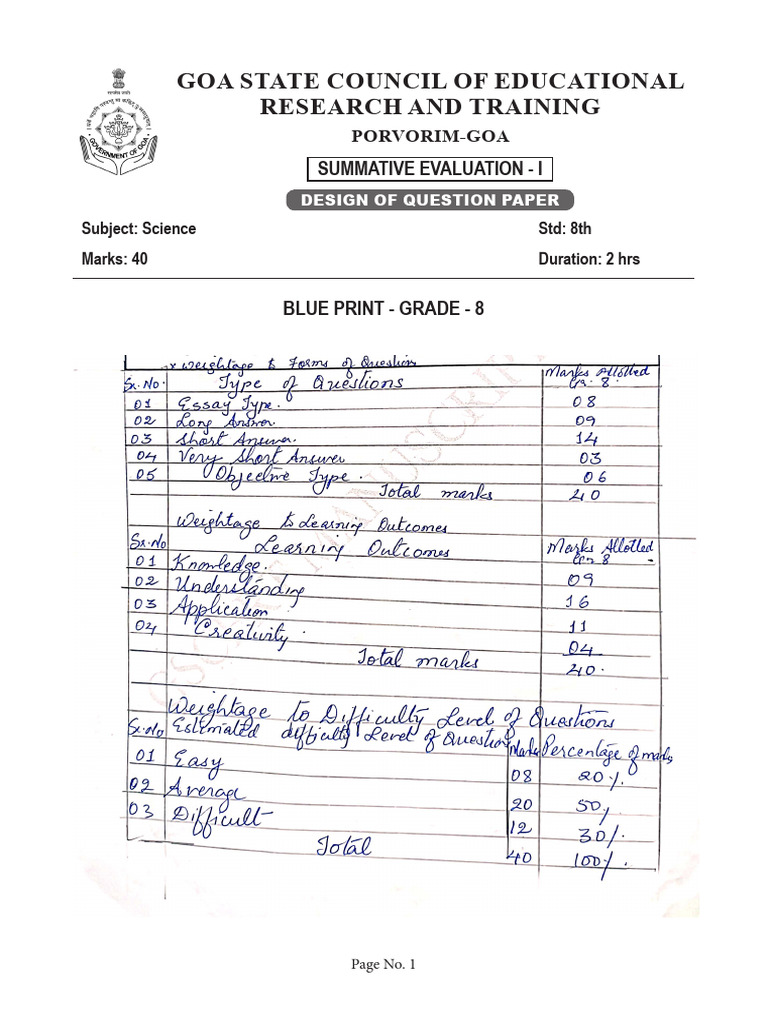 GOA STATE COUNCIL OF EDUCATIONAL
RESEARCH AND TRAINING
PORVORIM-GOA
SUMMATIVE EVALUATION - I
DESIGN OF QUESTION PAPER
सत्यमेव जयते
GOVERNMENT OF GOA
Subject: Science Std: 8th
Marks: 40 Duration: 2 hrs
BLUE PRINT - GRADE - 8
Weightage to Forms of Question
Sr.No. Type of Questions Marks Allotted Gr. 8.
01 Essay Type. 08
02 Long Answer 09
03 Short Answer. 14
04 Very Short Answer 03
05 Objective Type. 06
Total marks 40
Weightage to Learning Outcomes
Sr.No Learning Outcomes Marks Allotted Gr 8
01 Knowledge. 09
02 Understanding 16
03 Application 11
04 Creativity. 04
Total marks 40.
Weightage to Difficulty Level of Questions
Sr.No Estimated difficulty Level of Question Marks Percentage of marks
01 Easy 08 20%.
02 Average 20 50%
03 Difficult 12 30%.
Total 40 100%.
MANUSCRIPT
Page No. 1